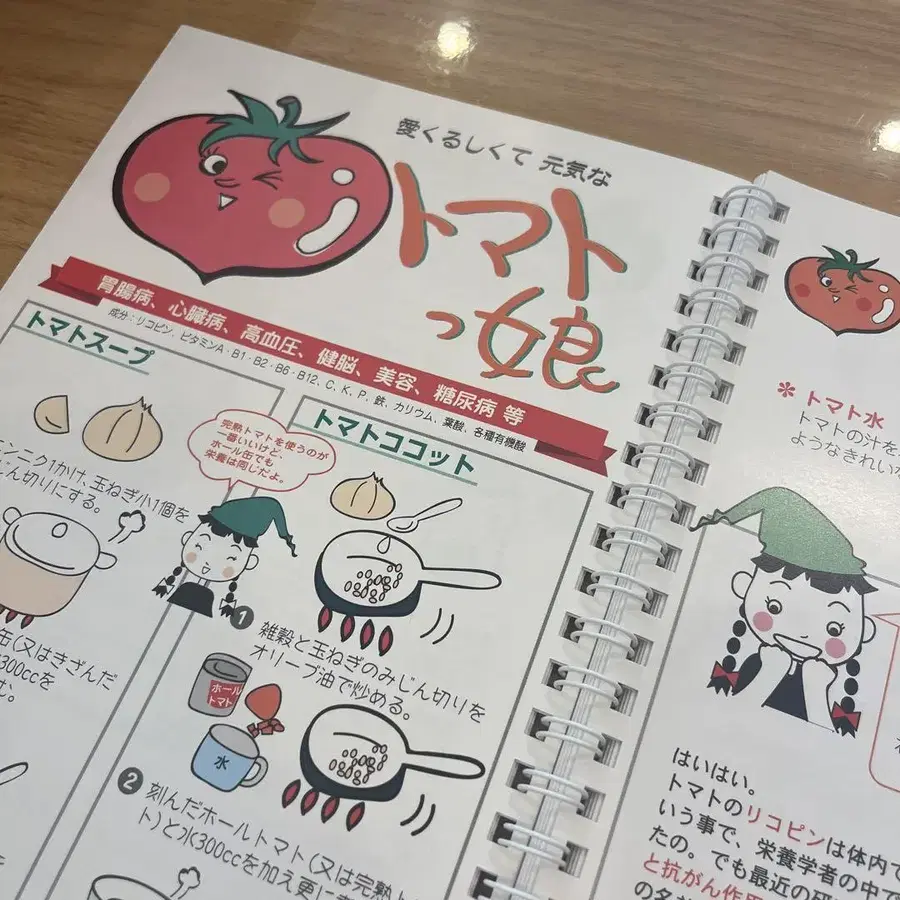 愛くるしくて 元気な
トマト
っ娘
胃腸病、心臓病、高血圧、健脳、美容、糖尿病 等
成分：リコピン、ビタミンA・B1・B2・B6・B12、C、K、P、鉄、カリウム、葉酸、各種有機酸
トマトスープ
ンニク1かけ、玉ねぎ小1個を
じん切りにする。
缶(又はきざんだ
300ccを
む。
完熟トマトを使うのが
一番いいけど、
ホール缶でも
栄養は同じだよ。
トマトココット
1
雑穀と玉ねぎのみじん切りを
オリーブ油で炒める。
ホール
トマト
水
2
刻んだホールトマト(又は完熟ト
ト)と水300ccを加え更に
* トマト水
トマトの汁を
ようなきれいな
はいはい。
トマトのリコピンは体内で
いう事で、栄養学者の中で
たの。でも最近の研
と抗がん作用